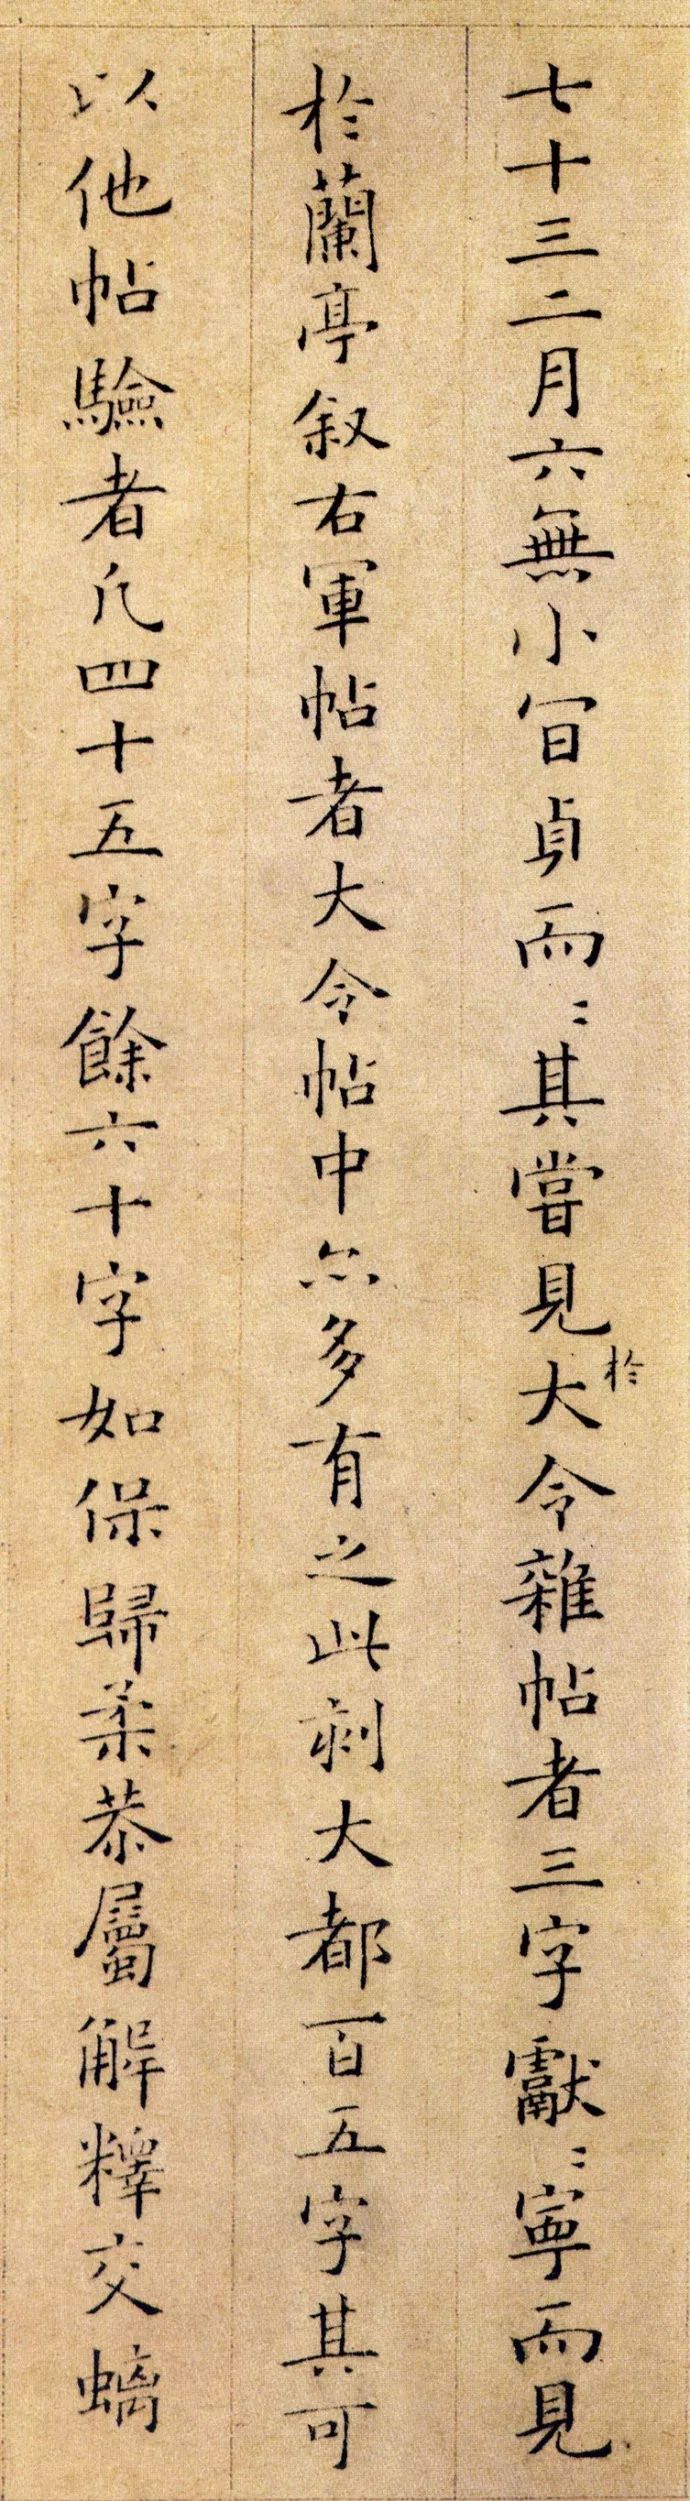 七十三二月六無小貞而〻其嘗見於大令雜帖者三字獻〻寧而見
於蘭亭叙右軍帖者大令帖中亦多有之此刻大都百五字其可
以他帖驗者凡四十五字餘六十字如保歸柔恭屬解釋交螭